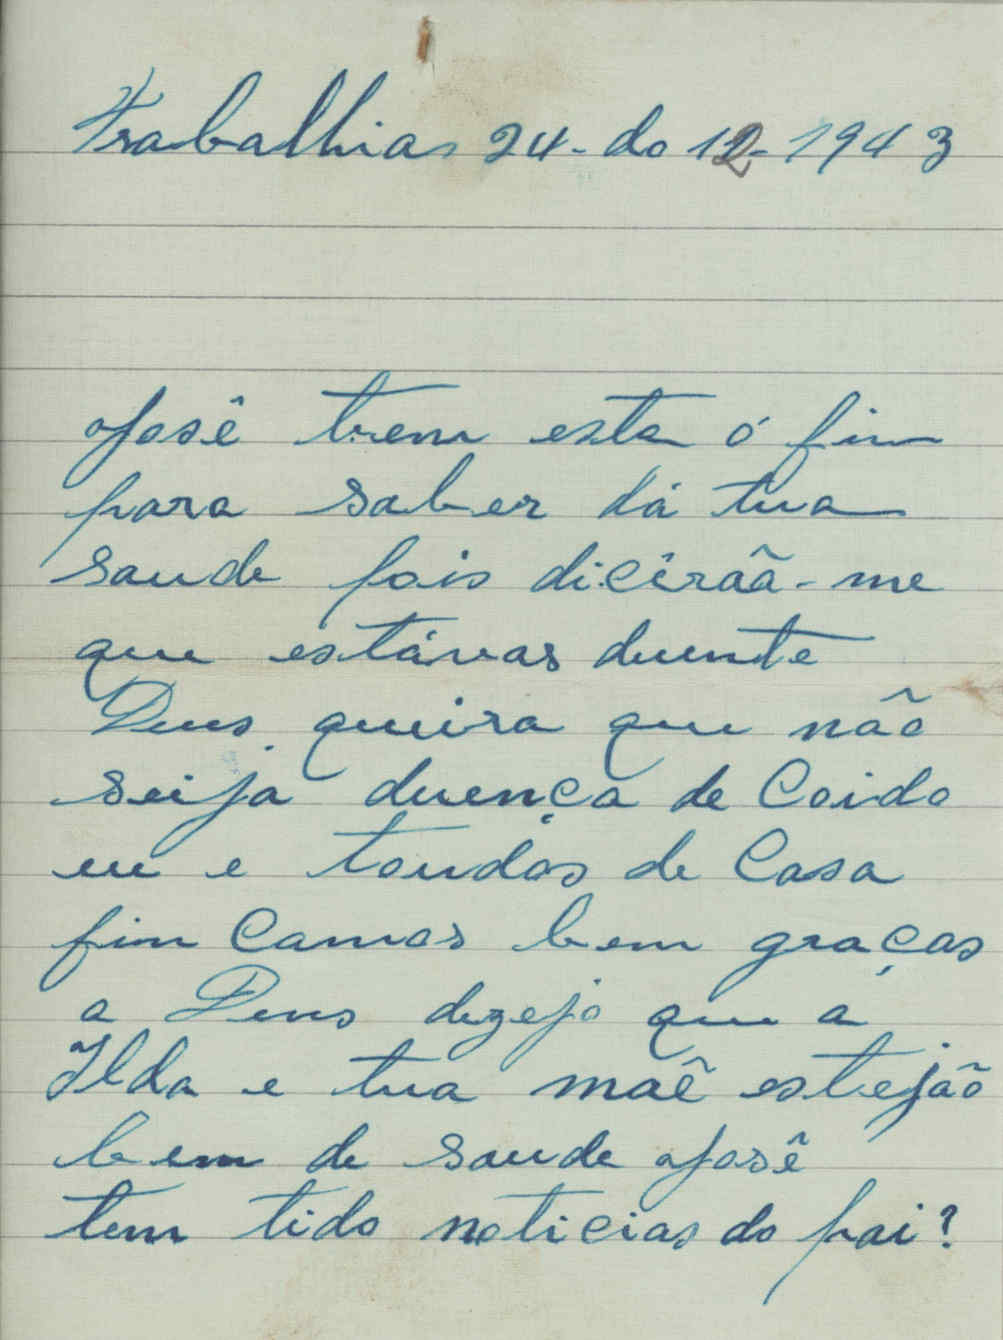 Trabalhias 24-do 12-1943
José trem esta ó fim
para saber dá tua
saude pois dicêraã-me
que estávas duente
Deus queira que não
seija duença de Coido
eu e toudos de Casa
fim Camos bem graças
a Deus dezejo que a
Ilda e tua maê estejão
bem de saude José
tem tido noticias do pai?